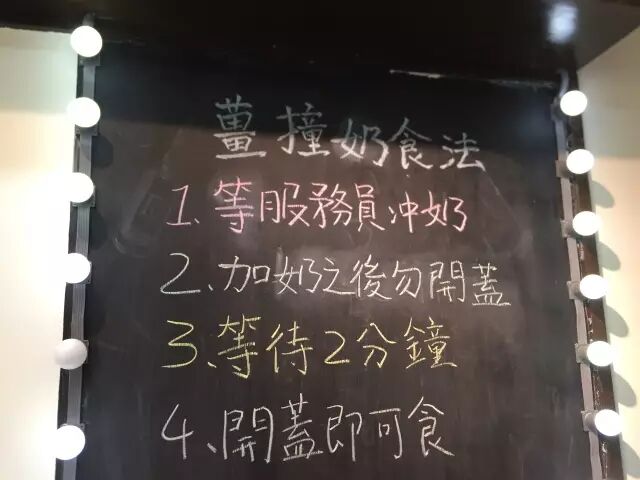 薑撞奶食法
1、等服務員冲奶
2、加奶之後勿開蓋
3、等待2分鐘
4、開蓋即可食